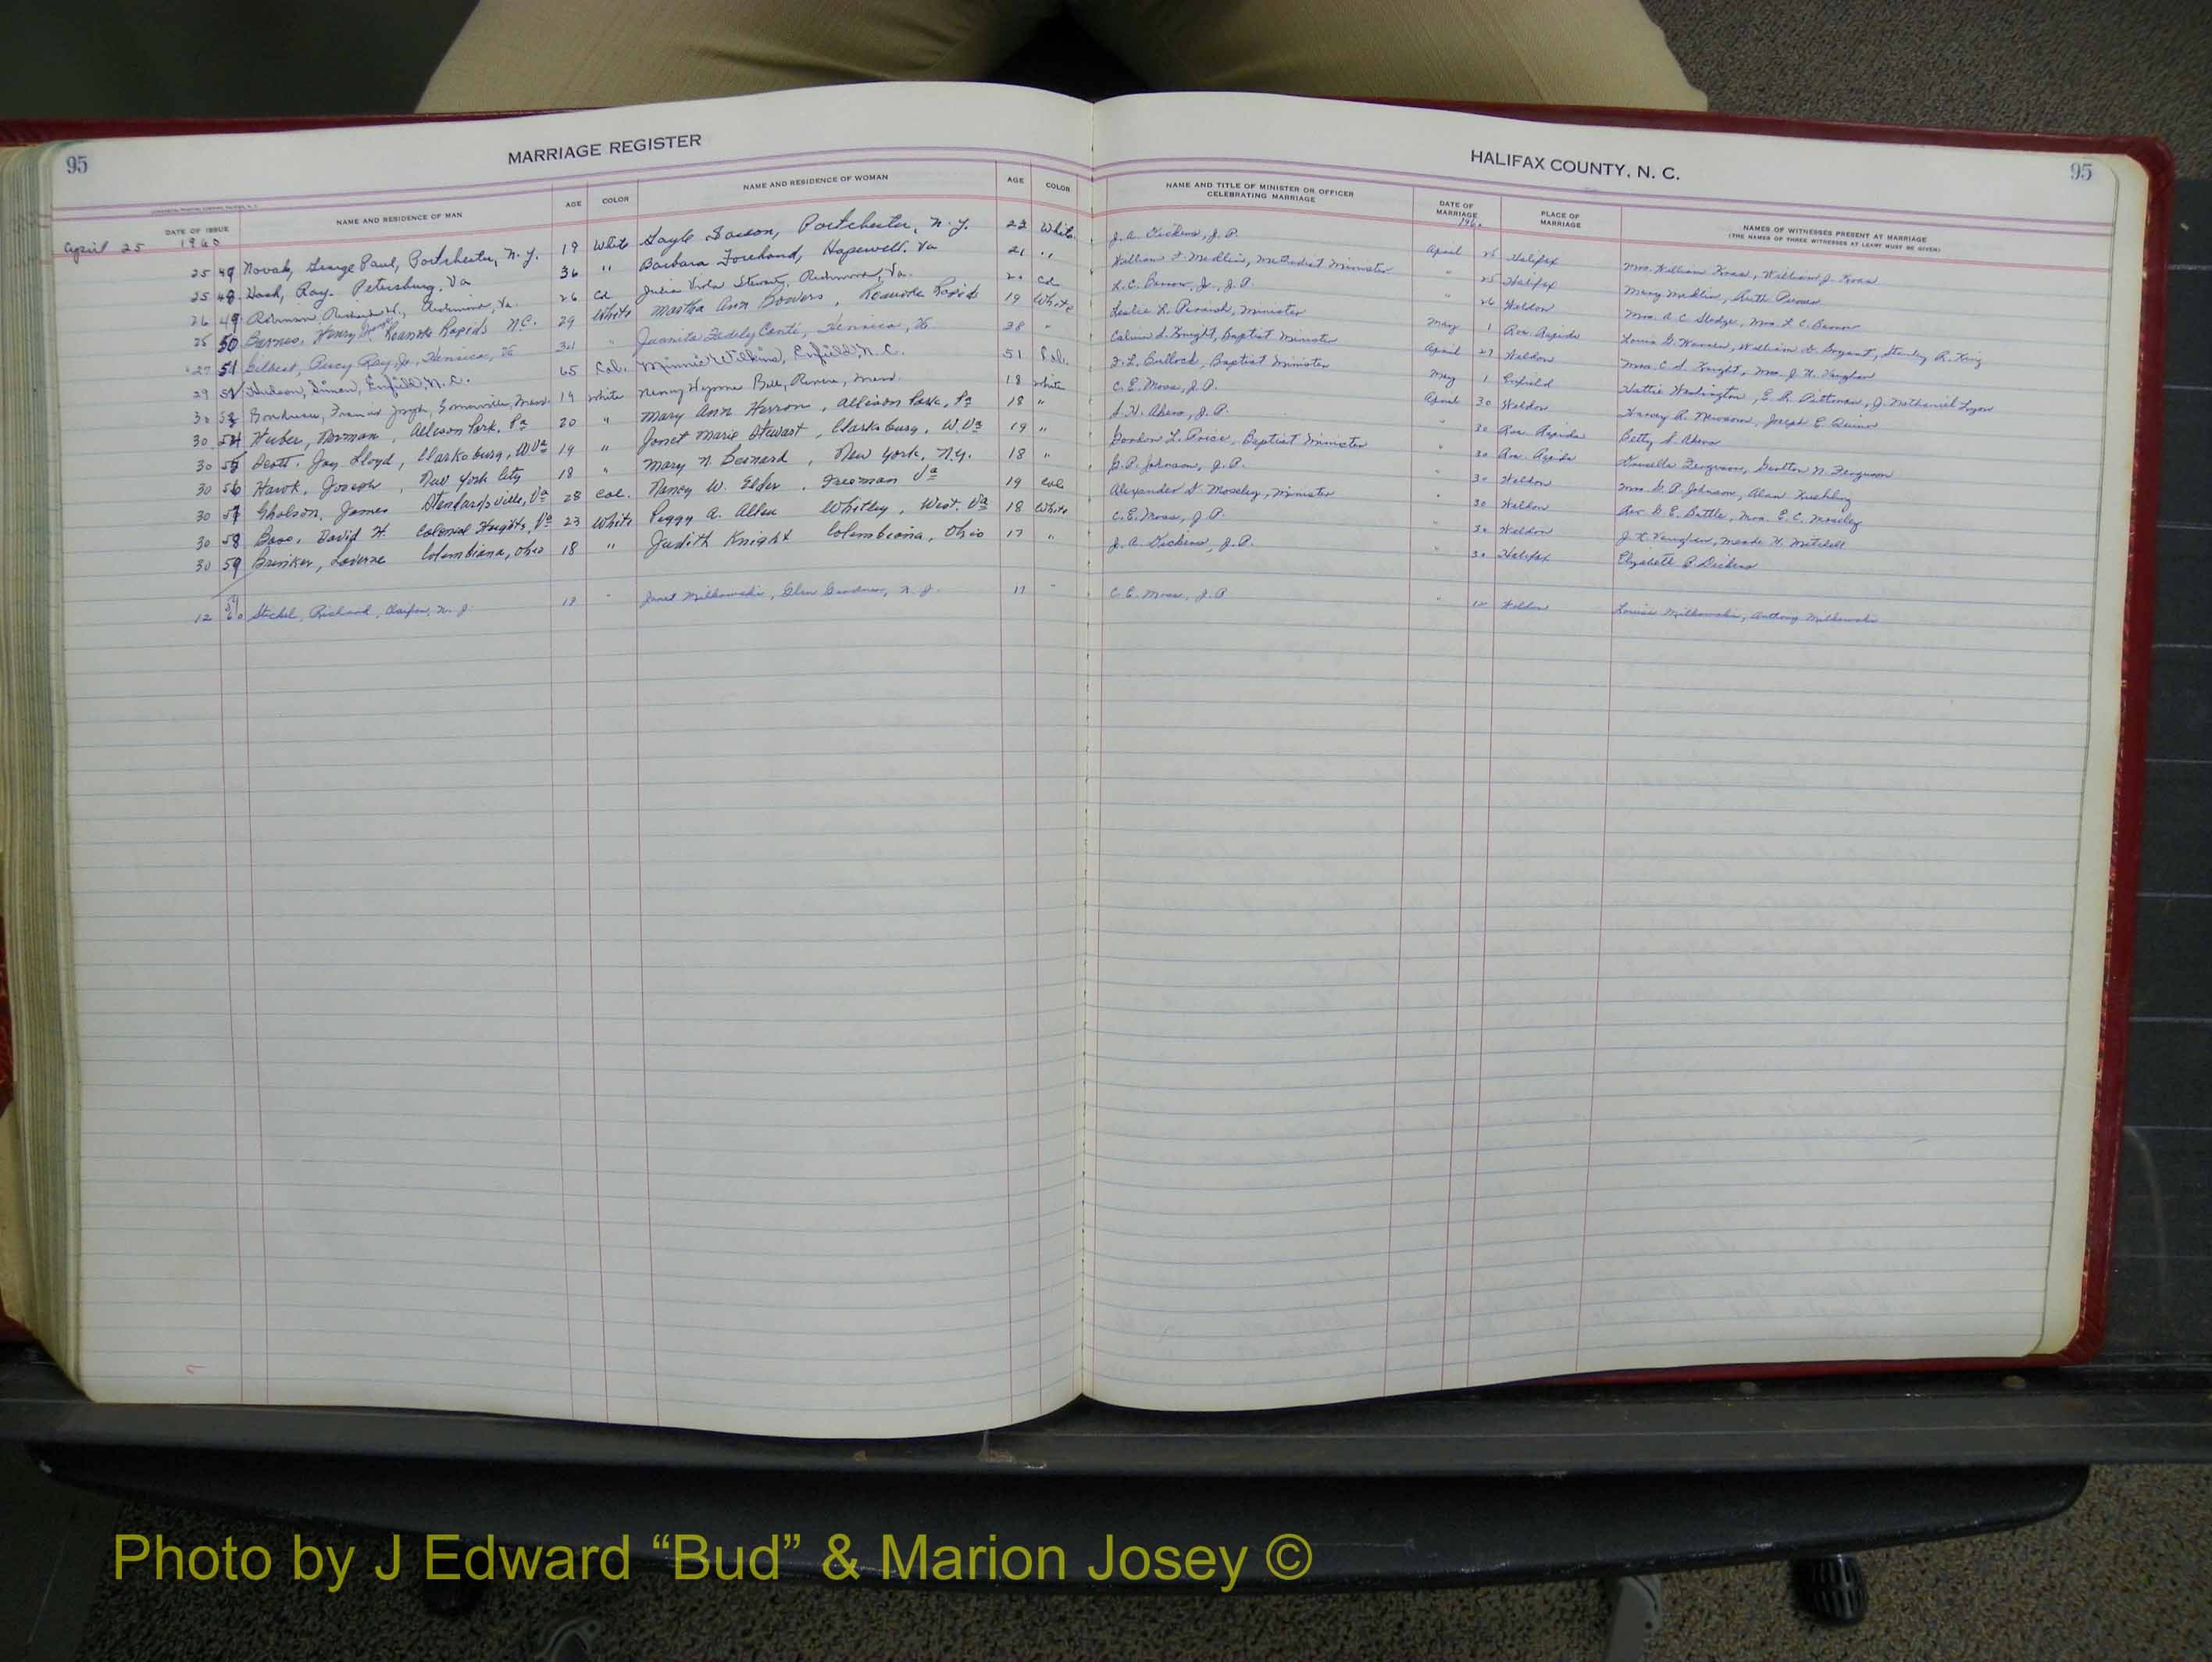 95
MARRIAGE REGISTER
HALIFAX COUNTY, N. C.
95
DATE OF ISSUE NAME AND RESIDENCE OF MAN AGE COLOR NAME AND RESIDENCE OF WOMAN AGE COLOR NAME AND TITLE OF MINISTER OR OFFICER CELEBRATING MARRIAGE DATE OF MARRIAGE PLACE OF MARRIAGE NAMES OF WITNESSES PRESENT AT MARRIAGE
(THE NAMES OF THREE WITNESSES AT LEAST MUST BE GIVEN)
April 25 1960
25 Novak, George Paul, Portchester, N.Y. 19 White Gayle Portchester, N.Y. 23 White J. A. Dickens, J.P. April 25 Halifax Mrs. William William J.
25 48 Ray. Petersburg, Va 36 " Barbara Forehand, Hopewell. Va 21 " William Medlin, Methodist Minister " 25 Halifax Mary Medlin, Ruth
26 49 Robinson, Richard Richmond, Va. 26 Col Julia Viola Stewart, Richmond, Va. Col L. C. Jr., J.P. " 26 Weldon Mrs. A. C. Sledge, Mrs. L. C.
25 50 Barnes, Henry Roanoke Rapids N.C. 29 White Martha Ann Bowers, Roanoke Rapids 19 White Leslie L. Parrish, Minister May 1 Roa. Rapids Louis G. William D. Bryant, Stanley R. King
27 51 Gilbert, Percy Ray, Jr. 34 " Juanita 38 " Calvin S. Knight, Baptist Minister April 27 Weldon Mrs. C. S. Knight, Mrs. J. H. Vaughan
29 52 Hudson, Simon, Enfield, N.C. 65 Col. Minnie Wilkins, Enfield, N.C. 51 Col. Bullock, Baptist Minister May 1 Enfield Hattie Washington, E. R. Pittman, J. Nathaniel
30 53 Francis Joseph, Somerville, Mass. 19 White Nancy Wynne Bell, Revere, Mass. 18 White C. E. Moss, J.P. April 30 Weldon Harvey R. Newsom, Joseph E. Quinn
30 54 Huber, Norman, Allison Park, Pa 20 " Mary Ann Herron, Allison Park, Pa 18 " S. H. Akers, J.P. " 30 Roa. Rapids Betty S. Akers
30 55 Scott, Jay Lloyd, Clarksburg, W.Va 19 " Janet Marie Stewart, Clarksburg, W.Va 19 " Gordon L. Price, Baptist Minister " 30 Roa. Rapids Ferguson, N. Ferguson
30 56 Hawk, Joseph, New York City 18 " Mary N. Bernard, New York, N.Y. 18 " G. P. Johnson, J.P. " 30 Weldon Mrs. G. P. Johnson, Alan
30 57 Gholson, James Standardsville, Va 28 Col. Nancy W. Elder, Freeman Va 19 Col Alexander S. Moseley, Minister " 30 Weldon Rev. G. E. Battle, Mrs. E. C. Moseley
30 58 David H. Colonial Heights, Va 23 White Peggy A. Allen Whitley, West. Va 18 White C. E. Moss, J.P. " 30 Weldon J. H. Vaughan, Meade H. Mitchell
30 59 Brinker, Laverne Columbiana, Ohio 18 " Judith Knight Columbiana, Ohio 17 " J. A. Dickens, J.P. " 30 Halifax Elizabeth P. Dickens
12 60 Stickel, Richard, N. J. " Janet Milkowski, Glen Gardner, N. J. 17 " C. E. Moss, J.P. " 12 Weldon Louise Milkowski, Anthony Milkowski
Photo by J Edward “Bud” & Marion Josey ©